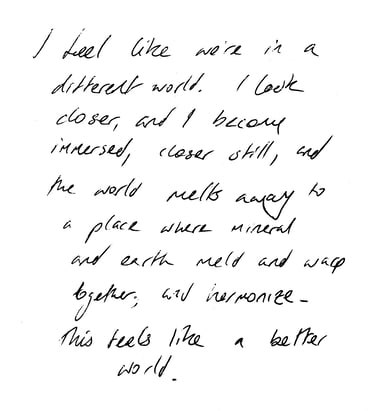 I feel like we're in a
different world. I look
closer, and I become
immersed, closer still, and
the world melts away to
a place where mineral
and earth meld and warp
together, and harmonize -
This feels like a better
world.